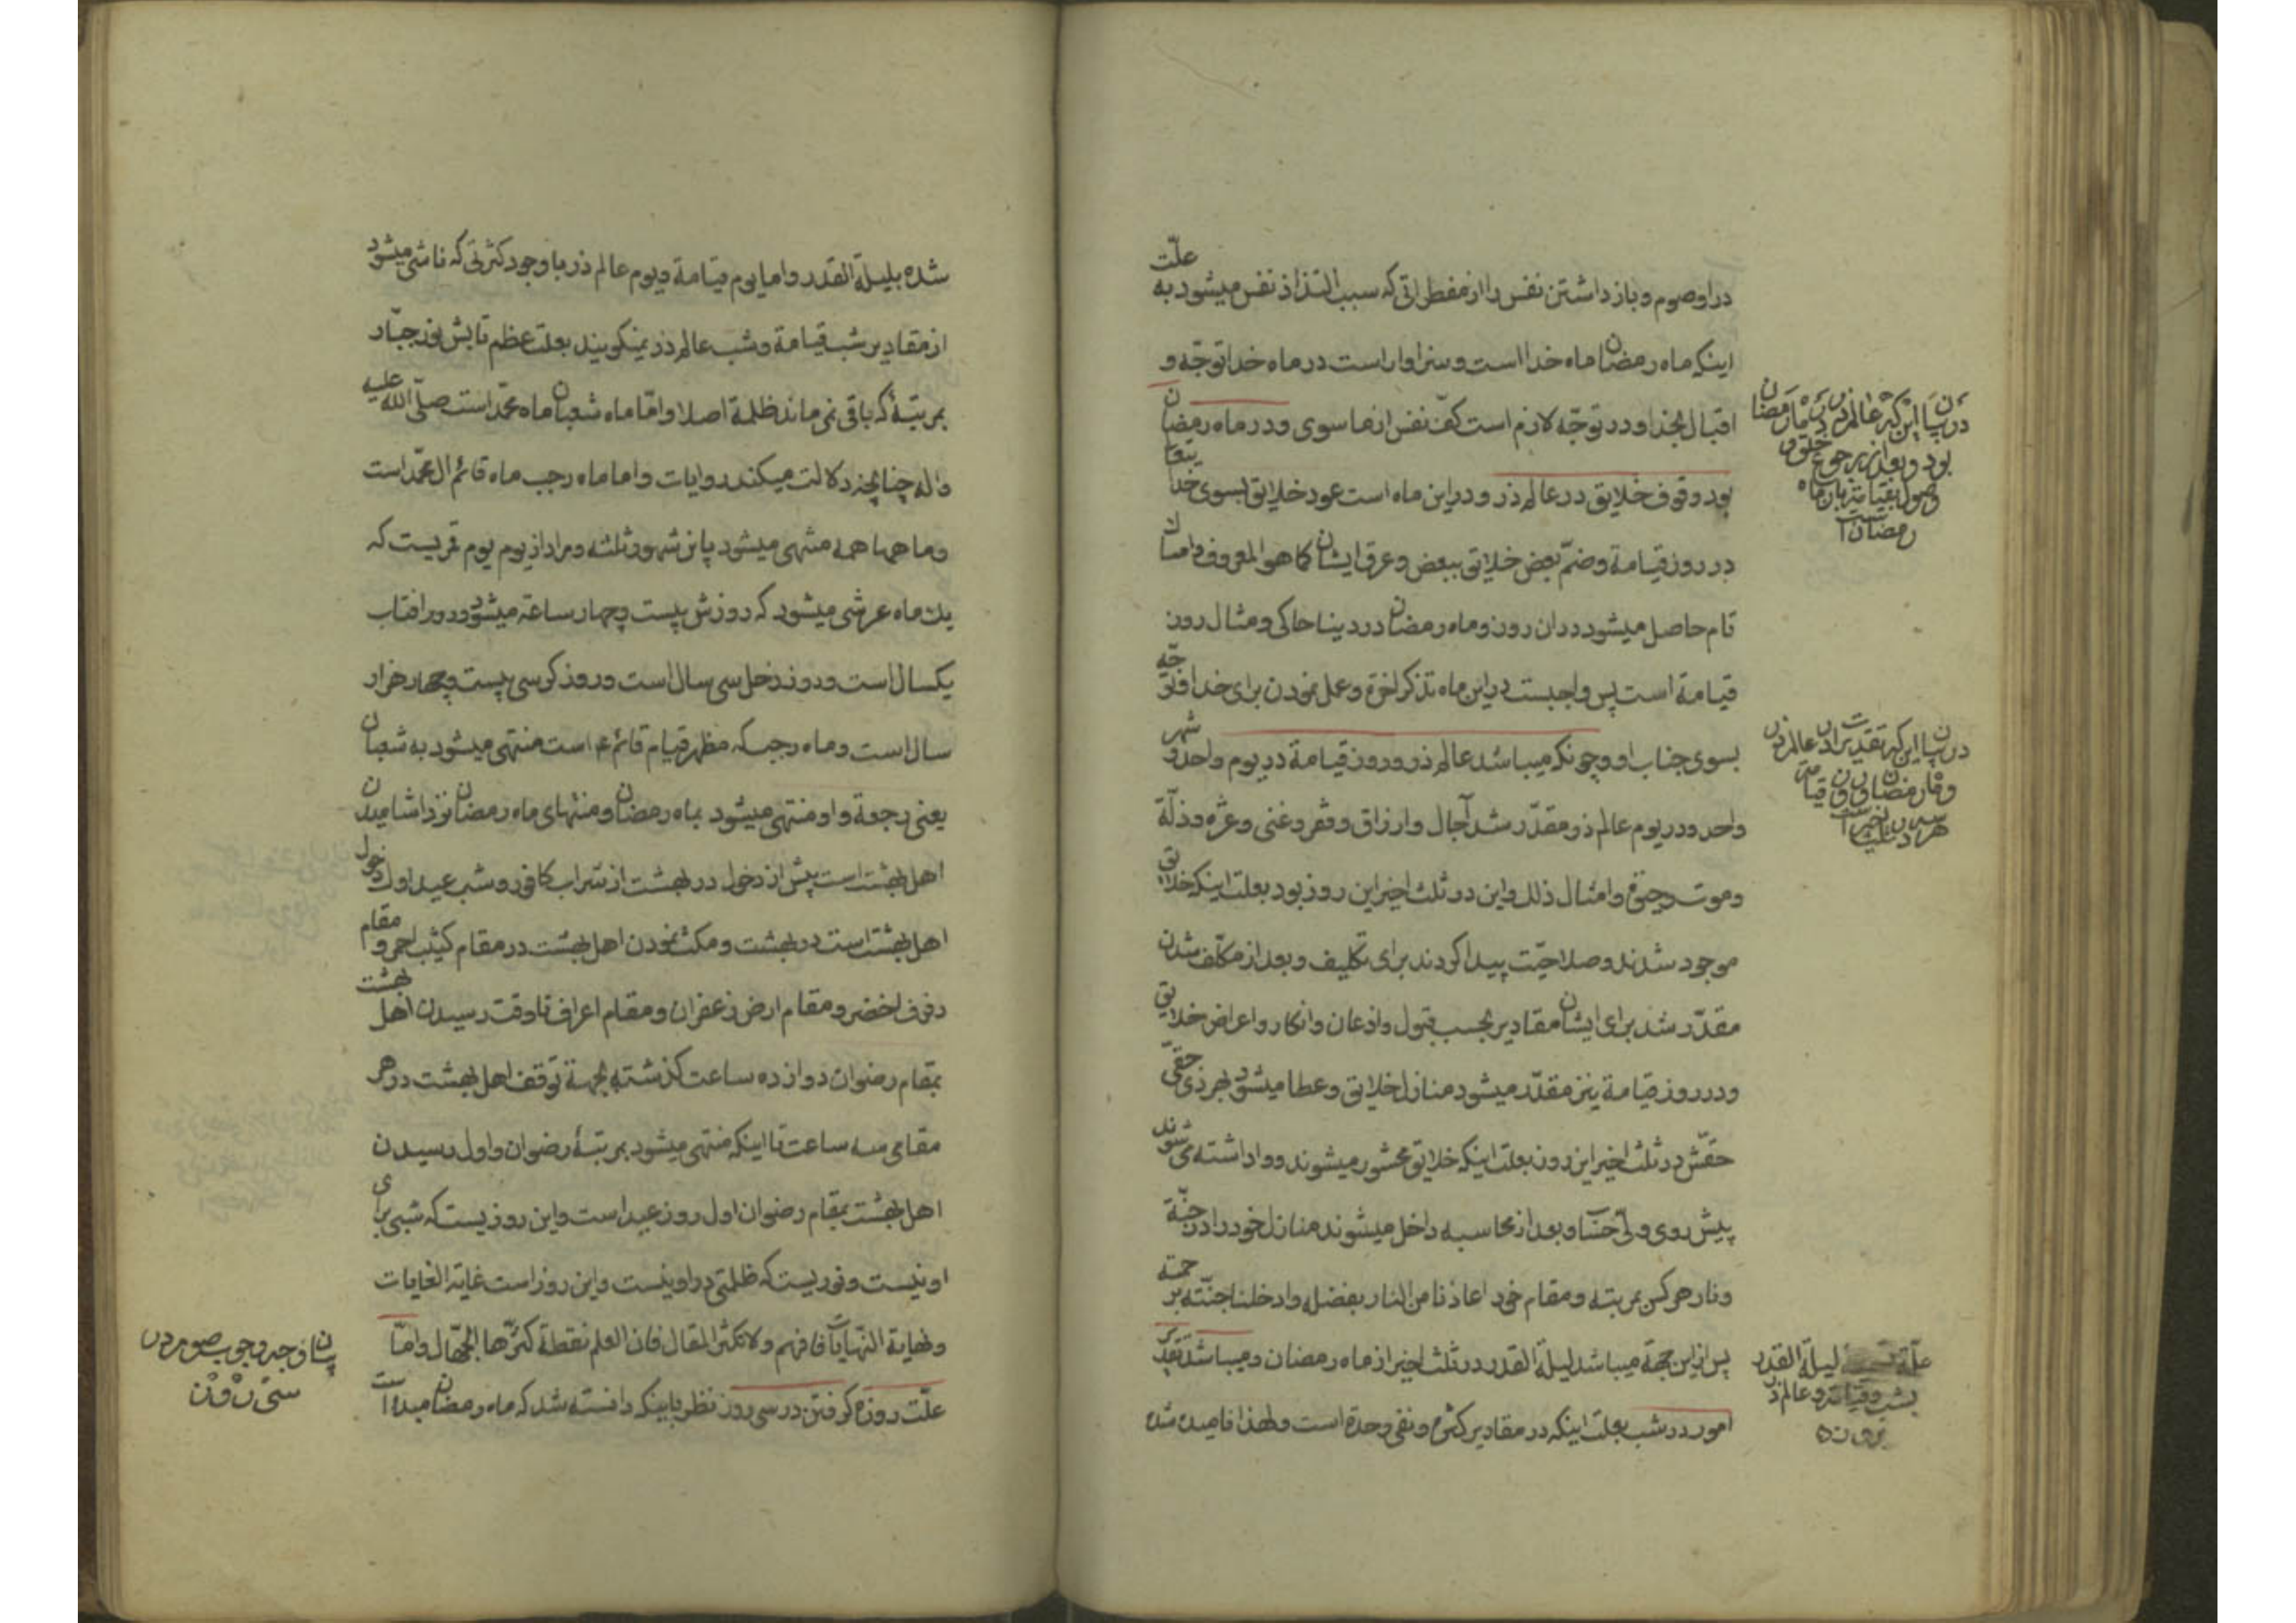 در او صوم و باز داشتن نفس را از مفطراتی که سبب التذاذ نفس میشود به علّت
اینکه ماه رمضان ماه خدا است و سزاوار است در ماه خدا توجّه و
اقبال بخدا و در توجّه لازم است کفّ نفس از ما سوی و در ماه رمضان
بود وقوف خلایق در عالم ذر و در این ماه است عود خلایق بسوی خدا یعنی
در روز قیامة و ضمّ بعض خلایق ببعض و عرق ایشان کما هو المعروف و امساك
تام حاصل میشود در ان روز و ماه رمضان در دنیا حاکی و مثال روز
قیامة است پس واجبست در این ماه تذکر اخرة و عمل نمودن برای خدا و توجّه
بسوی جناب او و چونکه میباشد عالم ذر و روز قیامة در یوم واحد و شهر
واحد و در یوم عالم ذر مقدّر شد آجال و ارزاق و فقر و غنی و عزّه و ذلّة
و موت و حیوة و امثال ذلك و این در ثلث اخیر این روز بود بعلت اینکه خلایق
موجود شدند و صلاحیّت پیدا کردند برای تکلیف و بعد از مکلّف شدن
مقدّر شد برای ایشان مقادیر بحسب قبول و اذعان و انکار و اعراض خلایق
و در روز قیامة نیز مقدّر میشود منازل خلایق و عطا میشود بهر ذی حقی
حقّش در ثلث اخیر این روز بعلت اینکه خلایق محشور میشوند و واداشته می شوند
پیش روی ولیّ حساب و بعد از محاسبه داخل میشوند منازل خود را در جنّة
و نار هر کس بمرتبه و مقام خود اعاذنا من النار بفضله و ادخلنا جنّته برحمته
پس از این جهة میباشد لیلة القدر در ثلث اخیر از ماه رمضان و میباشد تقدیر
امور در شب بعلت اینکه در مقادیر کثرة و نفی وحدة است و لهذا نامیده شده
در بیان این که عالم ذر در ماه رمضان
بود و بعد از رجوع خلق و
وصول بقیامت بان ماه
رمضان است
در بیان این که تقدیرات در عالم ذر
و ماه رمضان و روز قیامت
هر سه در ثلث اخیر است
علّة لیلة القدر
بشب و قیامت و عالم ذر
بروز
شده بلیلة القدر و اما یوم قیامة و یوم عالم ذر با وجود کثرتی که ناشی میشود
از مقادیر شب قیامة و شب عالم ذر نمیگویند بعلت عظم تابش نور جبّار
بمرتبهٔ که باقی نمی ماند ظلمة اصلا و امّا ماه شعبان ماه محمّد است صلّی الله علیه
و اله چنانچه دلالت میکند روایات و اما ماه رجب ماه قائم ال محمّد است
و ماهها همه منتهی میشود باین شهور ثلثه و مراد از یوم یوم قمریست که
یك ماه عرشی میشود که روزش بیست و چهار ساعة میشود و دور افتاب
یکسال است و روز زحل سی سال است و روز کرسی بیست و چهار هزار
سال است و ماه رجب که مظهر قیام قائم ع است منتهی میشود به شعبان
یعنی رجعة و او منتهی میشود بماه رمضان و منتهای ماه رمضان نزد اشامیدن
اهل بهشت است پیش از دخول در بهشت از شراب کافور و شب عید اول دخول
اهل بهشت است در بهشت و مکث نمودن اهل بهشت در مقام کثیب احمر و مقام
رفرف اخضر و مقام ارض زعفران و مقام اعراف تا وقت رسیدن اهل بهشت
بمقام رضوان دوازده ساعت گذشته بجهة توقف اهل بهشت در هر
مقامی سه ساعت تا اینکه منتهی میشود بمرتبهٔ رضوان و اول رسیدن
اهل بهشت بمقام رضوان اول روز عید است و این روزیست که شبی برای
او نیست و نوریست که ظلمتی در او نیست و این روز است غایة الغایات
و نهایة النّهایات فافهم و لا تکثر المقال فان العلم نقطة کثّرها الجهّال و امّا
علّت روزه گرفتن در سی روز نظر باینکه دانسته شد که ماه رمضان مبدء است
بیان وجه وجوب صوم در
سی روز